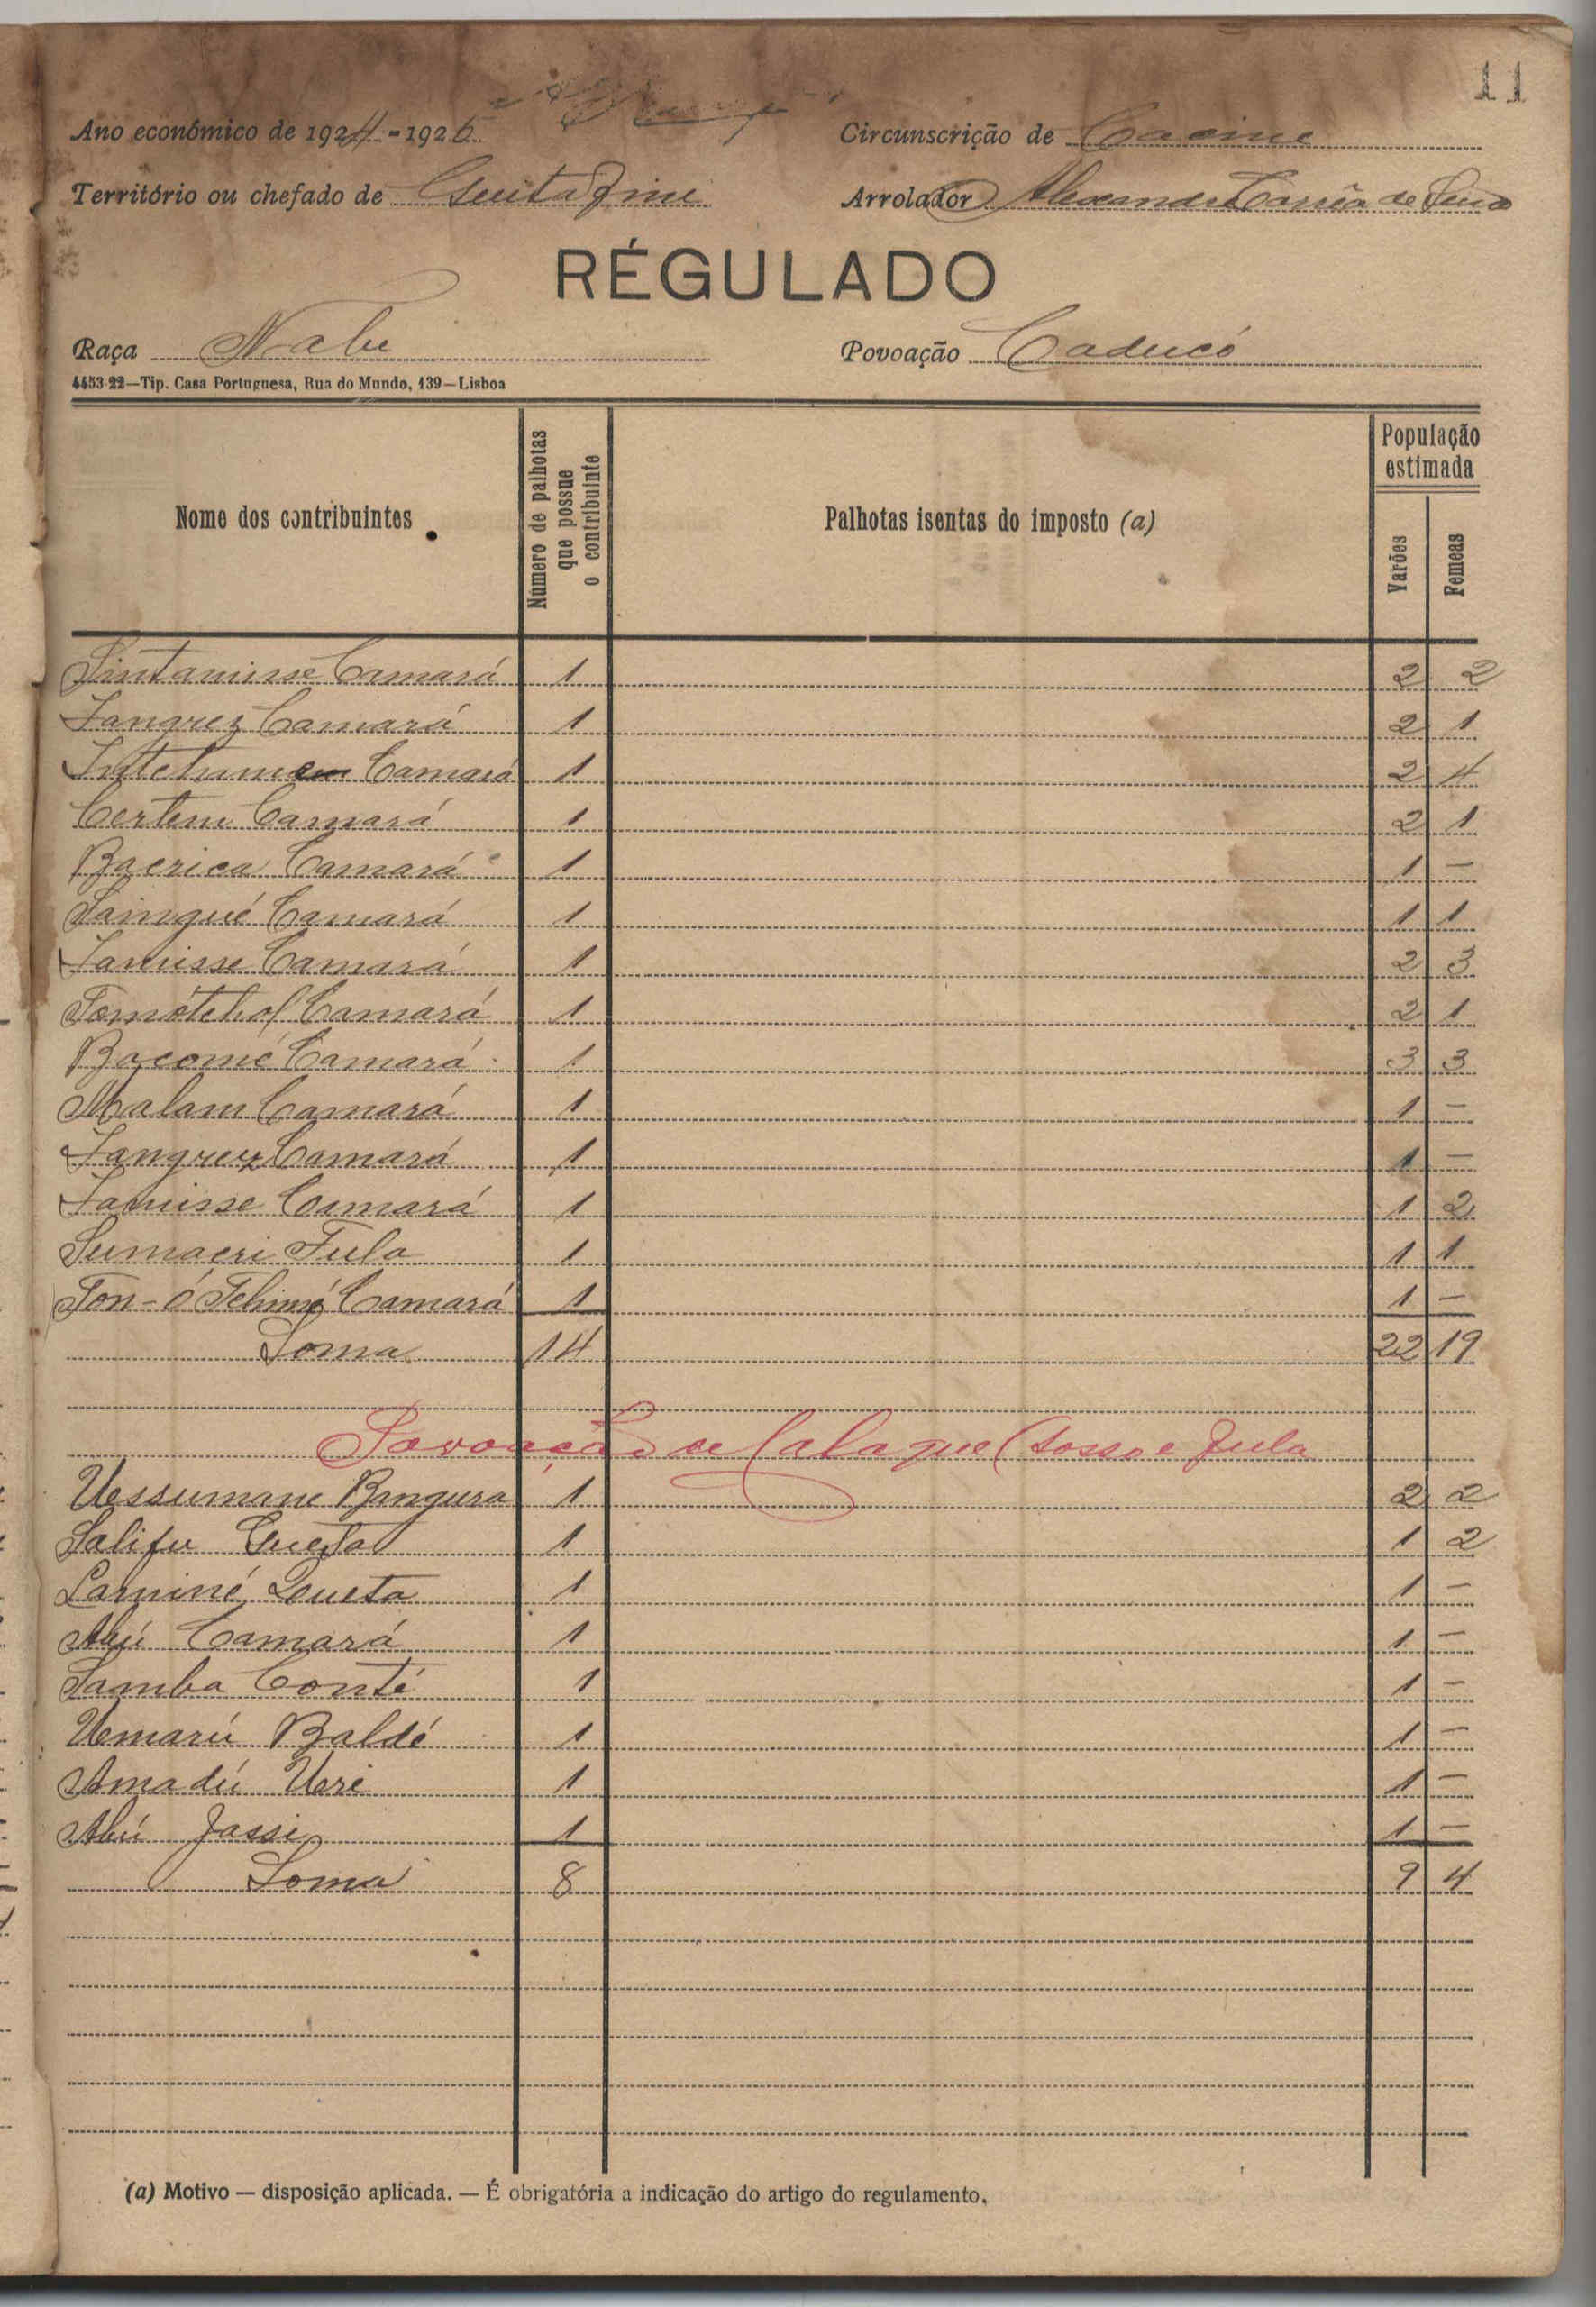 11
Ano económico de 1924-1925
Circunscrição de Cacine
Território ou chefado de Guitafine
Arrolador Alexandre Corrêa de Sena
RÉGULADO
Raça Nalu
Povoação Caducó
4453-22—Tip. Casa Portuguesa, Rua do Mundo, 139—Lisboa
Nome dos contribuintes
Número de palhotas que possue o contribuinte
Palhotas isentas do imposto (a)
População estimada
Varões
Femeas
Camará 1 2 2
Tangrez Camará 1 2 1
Camará 1 2 4
Camará 1 2 1
Bacrica Camará 1 1 —
Saingué Camará 1 1 1
Tamisse Camará 1 2 3
Camará 1 2 1
Bacomé Camará 1 3 3
Malam Camará 1 1 —
Tangrez Camará 1 1 —
Tamisse Camará 1 1 2
Sumacri Fula 1 1 1
Camará 1 1 —
Soma 14 22 19
Povoação de Calaque (Sosso e Fula
Uessumane Bangura 1 2 2
Salifu 1 1 2
Laminé 1 1 —
Abú Camará 1 1 —
Samba Conté 1 1 —
Uemarú Baldé 1 1 —
Amadú Ueri 1 1 —
Abú Jassi 1 1 —
Soma 8 9 4
(a) Motivo — disposição aplicada. — É obrigatória a indicação do artigo do regulamento.